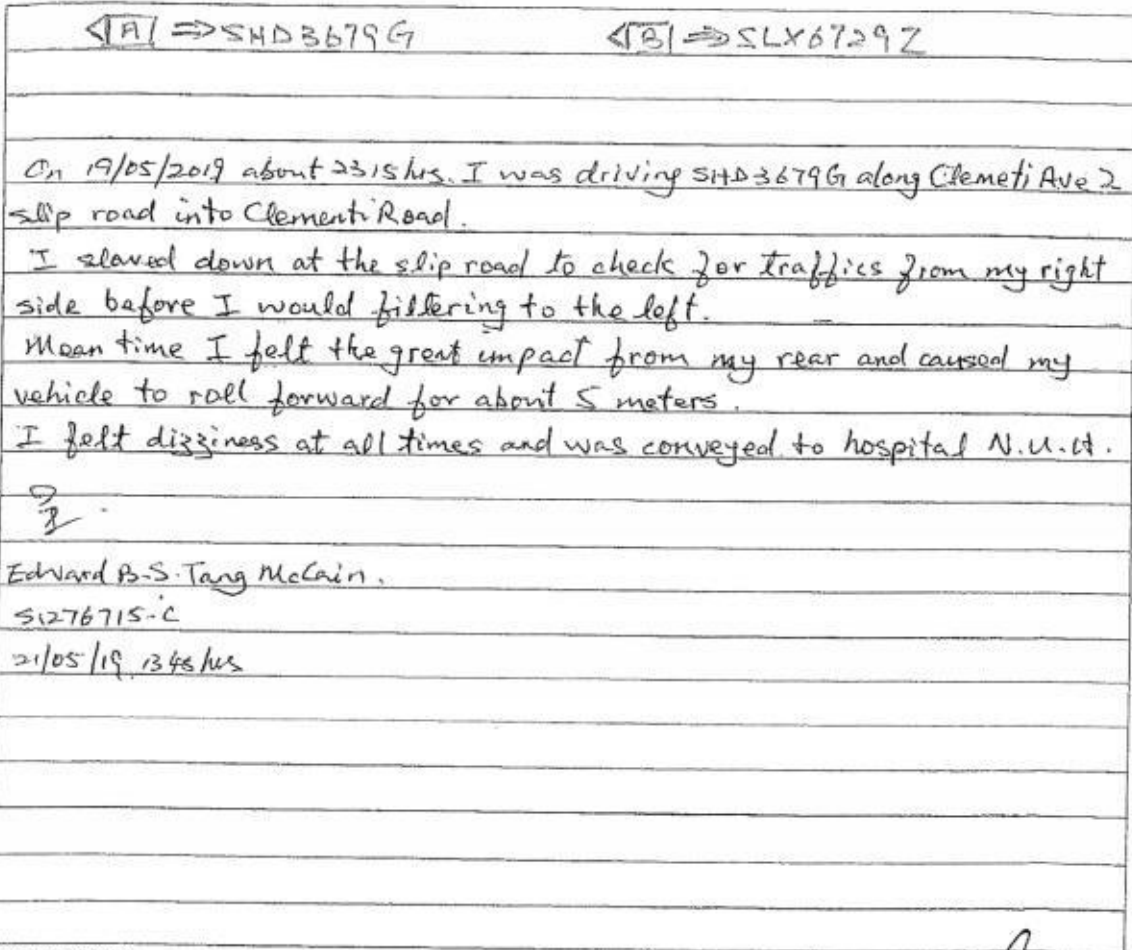 A ⇒ SHD3679G B ⇒ SLX6729Z
On 19/05/2019 about 2315hrs. I was driving SHD3679G along Clemeti Ave 2
slip road into Clementi Road.
I slaved down at the slip road to check for traffics from my right
side before I would filtering to the left.
Mean time I felt the great impact from my rear and caused my
vehicle to roll forward for about 5 meters.
I felt dizziness at all times and was conveyed to hospital N.U.H.
Edward B.S. Tang McCain.
S1276715-C
21/05/19 1348hrs